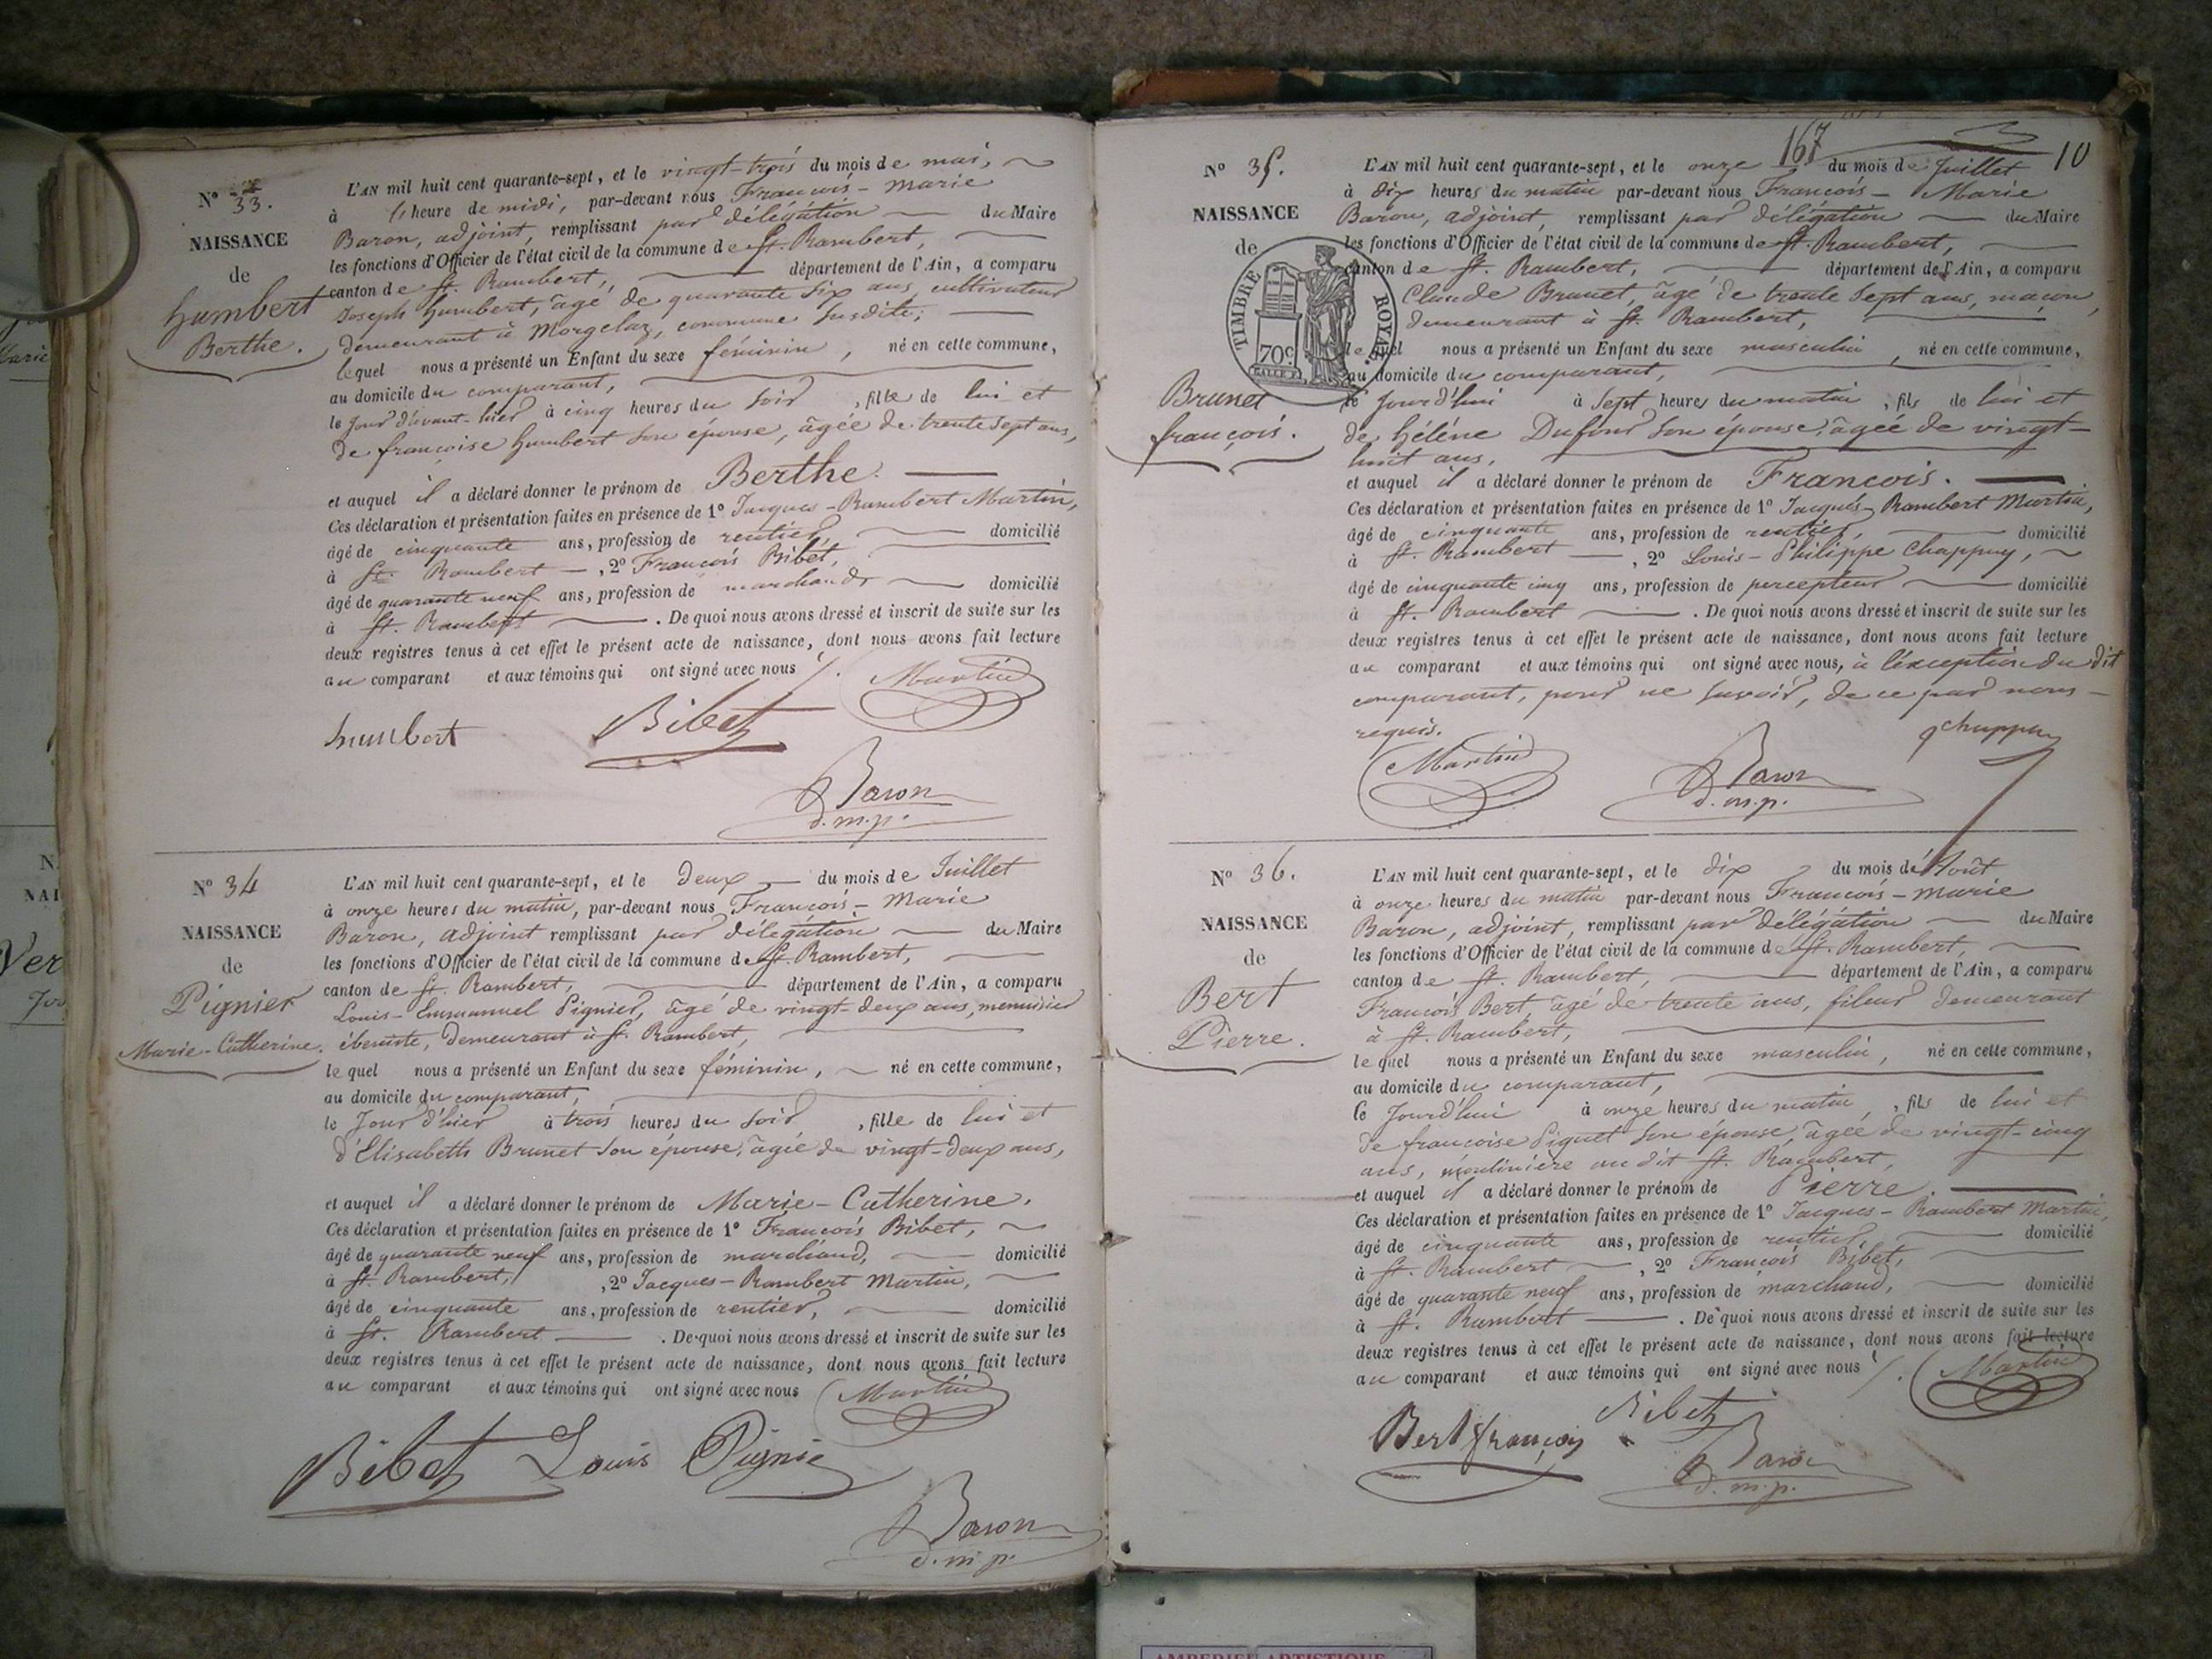 N° 33.
NAISSANCE
de
humbert
Berthe.
L'AN mil huit cent quarante-sept, et le vingt-trois du mois de mai,
à l'heure de midi, par-devant nous François-Marie
Baron, adjoint, remplissant par délégation du Maire
les fonctions d'Officier de l'état civil de la commune de St. Rambert,
canton de St. Rambert, département de l'Ain, a comparu
Joseph humbert, âgé de quarante six ans, cultivateur
demeurant à Morgelaz, commune susdite;
lequel nous a présenté un Enfant du sexe féminin, né en cette commune,
au domicile du comparant,
le jour d'avant-hier à cinq heures du soir, fille de lui et
de françoise humbert son épouse, âgée de trente sept ans,
et auquel il a déclaré donner le prénom de Berthe.
Ces déclaration et présentation faites en présence de 1° Jacques-Rambert Martin,
âgé de cinquante ans, profession de rentier, domicilié
à St. Rambert, 2° François Bibet,
âgé de quarante neuf ans, profession de marchand domicilié
à St. Rambert. De quoi nous avons dressé et inscrit de suite sur les
deux registres tenus à cet effet le présent acte de naissance, dont nous avons fait lecture
au comparant et aux témoins qui ont signé avec nous
Martin
humbert Bibet
Baron
d. m. p.
N° 34
NAISSANCE
de
Pignier
Marie-Catherine.
L'AN mil huit cent quarante-sept, et le deux du mois de Juillet
à onze heures du matin, par-devant nous François-Marie
Baron, adjoint remplissant par délégation du Maire
les fonctions d'Officier de l'état civil de la commune de St. Rambert,
canton de St. Rambert, département de l'Ain, a comparu
Louis-Emmanuel Pignier, âgé de vingt-deux ans, menuisier
ébeniste, demeurant à St. Rambert,
lequel nous a présenté un Enfant du sexe féminin, né en cette commune,
au domicile du comparant,
le Jour d'hier à trois heures du soir, fille de lui et
d'Elisabeth Brunet son épouse, âgée de vingt-deux ans,
et auquel il a déclaré donner le prénom de Marie-Catherine.
Ces déclaration et présentation faites en présence de 1° François Bibet,
âgé de quarante neuf ans, profession de marchand, domicilié
à St. Rambert, 2° Jacques-Rambert Martin,
âgé de cinquante ans, profession de rentier, domicilié
à St. Rambert. De quoi nous avons dressé et inscrit de suite sur les
deux registres tenus à cet effet le présent acte de naissance, dont nous avons fait lecture
au comparant et aux témoins qui ont signé avec nous Martin
Bibet Louis Pignie
Baron
d. m. p.
167 10
N° 35.
NAISSANCE
de
TIMBRE ROYAL
70c
Brunet
françois.
L'AN mil huit cent quarante-sept, et le onze du mois de Juillet
à dix heures du matin par-devant nous François-Marie
Baron, adjoint, remplissant par délégation du Maire
les fonctions d'Officier de l'état civil de la commune de St. Rambert,
canton de St. Rambert, département de l'Ain, a comparu
Claude Brunet, âgé de trente sept ans, maçon,
demeurant à St. Rambert,
lequel nous a présenté un Enfant du sexe masculin, né en cette commune,
au domicile du comparant,
le Jourd'hui à sept heures du matin, fils de lui et
de héléne Dufour son épouse, âgée de vingt-
huit ans,
et auquel il a déclaré donner le prénom de François.
Ces déclaration et présentation faites en présence de 1° Jacques-Rambert Martin,
âgé de cinquante ans, profession de rentier, domicilié
à St. Rambert, 2° Louis-Philippe Chappuy,
âgé de cinquante cinq ans, profession de percepteur domicilié
à St. Rambert. De quoi nous avons dressé et inscrit de suite sur les
deux registres tenus à cet effet le présent acte de naissance, dont nous avons fait lecture
au comparant et aux témoins qui ont signé avec nous, à l'exception du dit
comparant, pour ne savoir, de ce par nous
requis.
chappuy
Martin Baron
d. m. p.
N° 36.
NAISSANCE
de
Bert
Pierre.
L'AN mil huit cent quarante-sept, et le dix du mois de Août
à onze heures du matin par-devant nous François-Marie
Baron, adjoint, remplissant par délégation du Maire
les fonctions d'Officier de l'état civil de la commune de St. Rambert,
canton de St. Rambert, département de l'Ain, a comparu
François Bert, âgé de trente ans, fileur demeurant
à St. Rambert,
lequel nous a présenté un Enfant du sexe masculin, né en cette commune,
au domicile du comparant,
le Jourd'hui à onze heures du matin, fils de lui et
de françoise Piquet son épouse, âgée de vingt-cinq
ans, moulinière au dit St. Rambert,
et auquel il a déclaré donner le prénom de Pierre.
Ces déclaration et présentation faites en présence de 1° Jacques-Rambert Martin,
âgé de cinquante ans, profession de rentier, domicilié
à St. Rambert, 2° François Bibet,
âgé de quarante neuf ans, profession de marchand, domicilié
à St. Rambert. De quoi nous avons dressé et inscrit de suite sur les
deux registres tenus à cet effet le présent acte de naissance, dont nous avons fait lecture
au comparant et aux témoins qui ont signé avec nous Martin
Bert françois Bibet
Baron
d. m. p.
Ver
AMBERIEU ARTISTIQUE